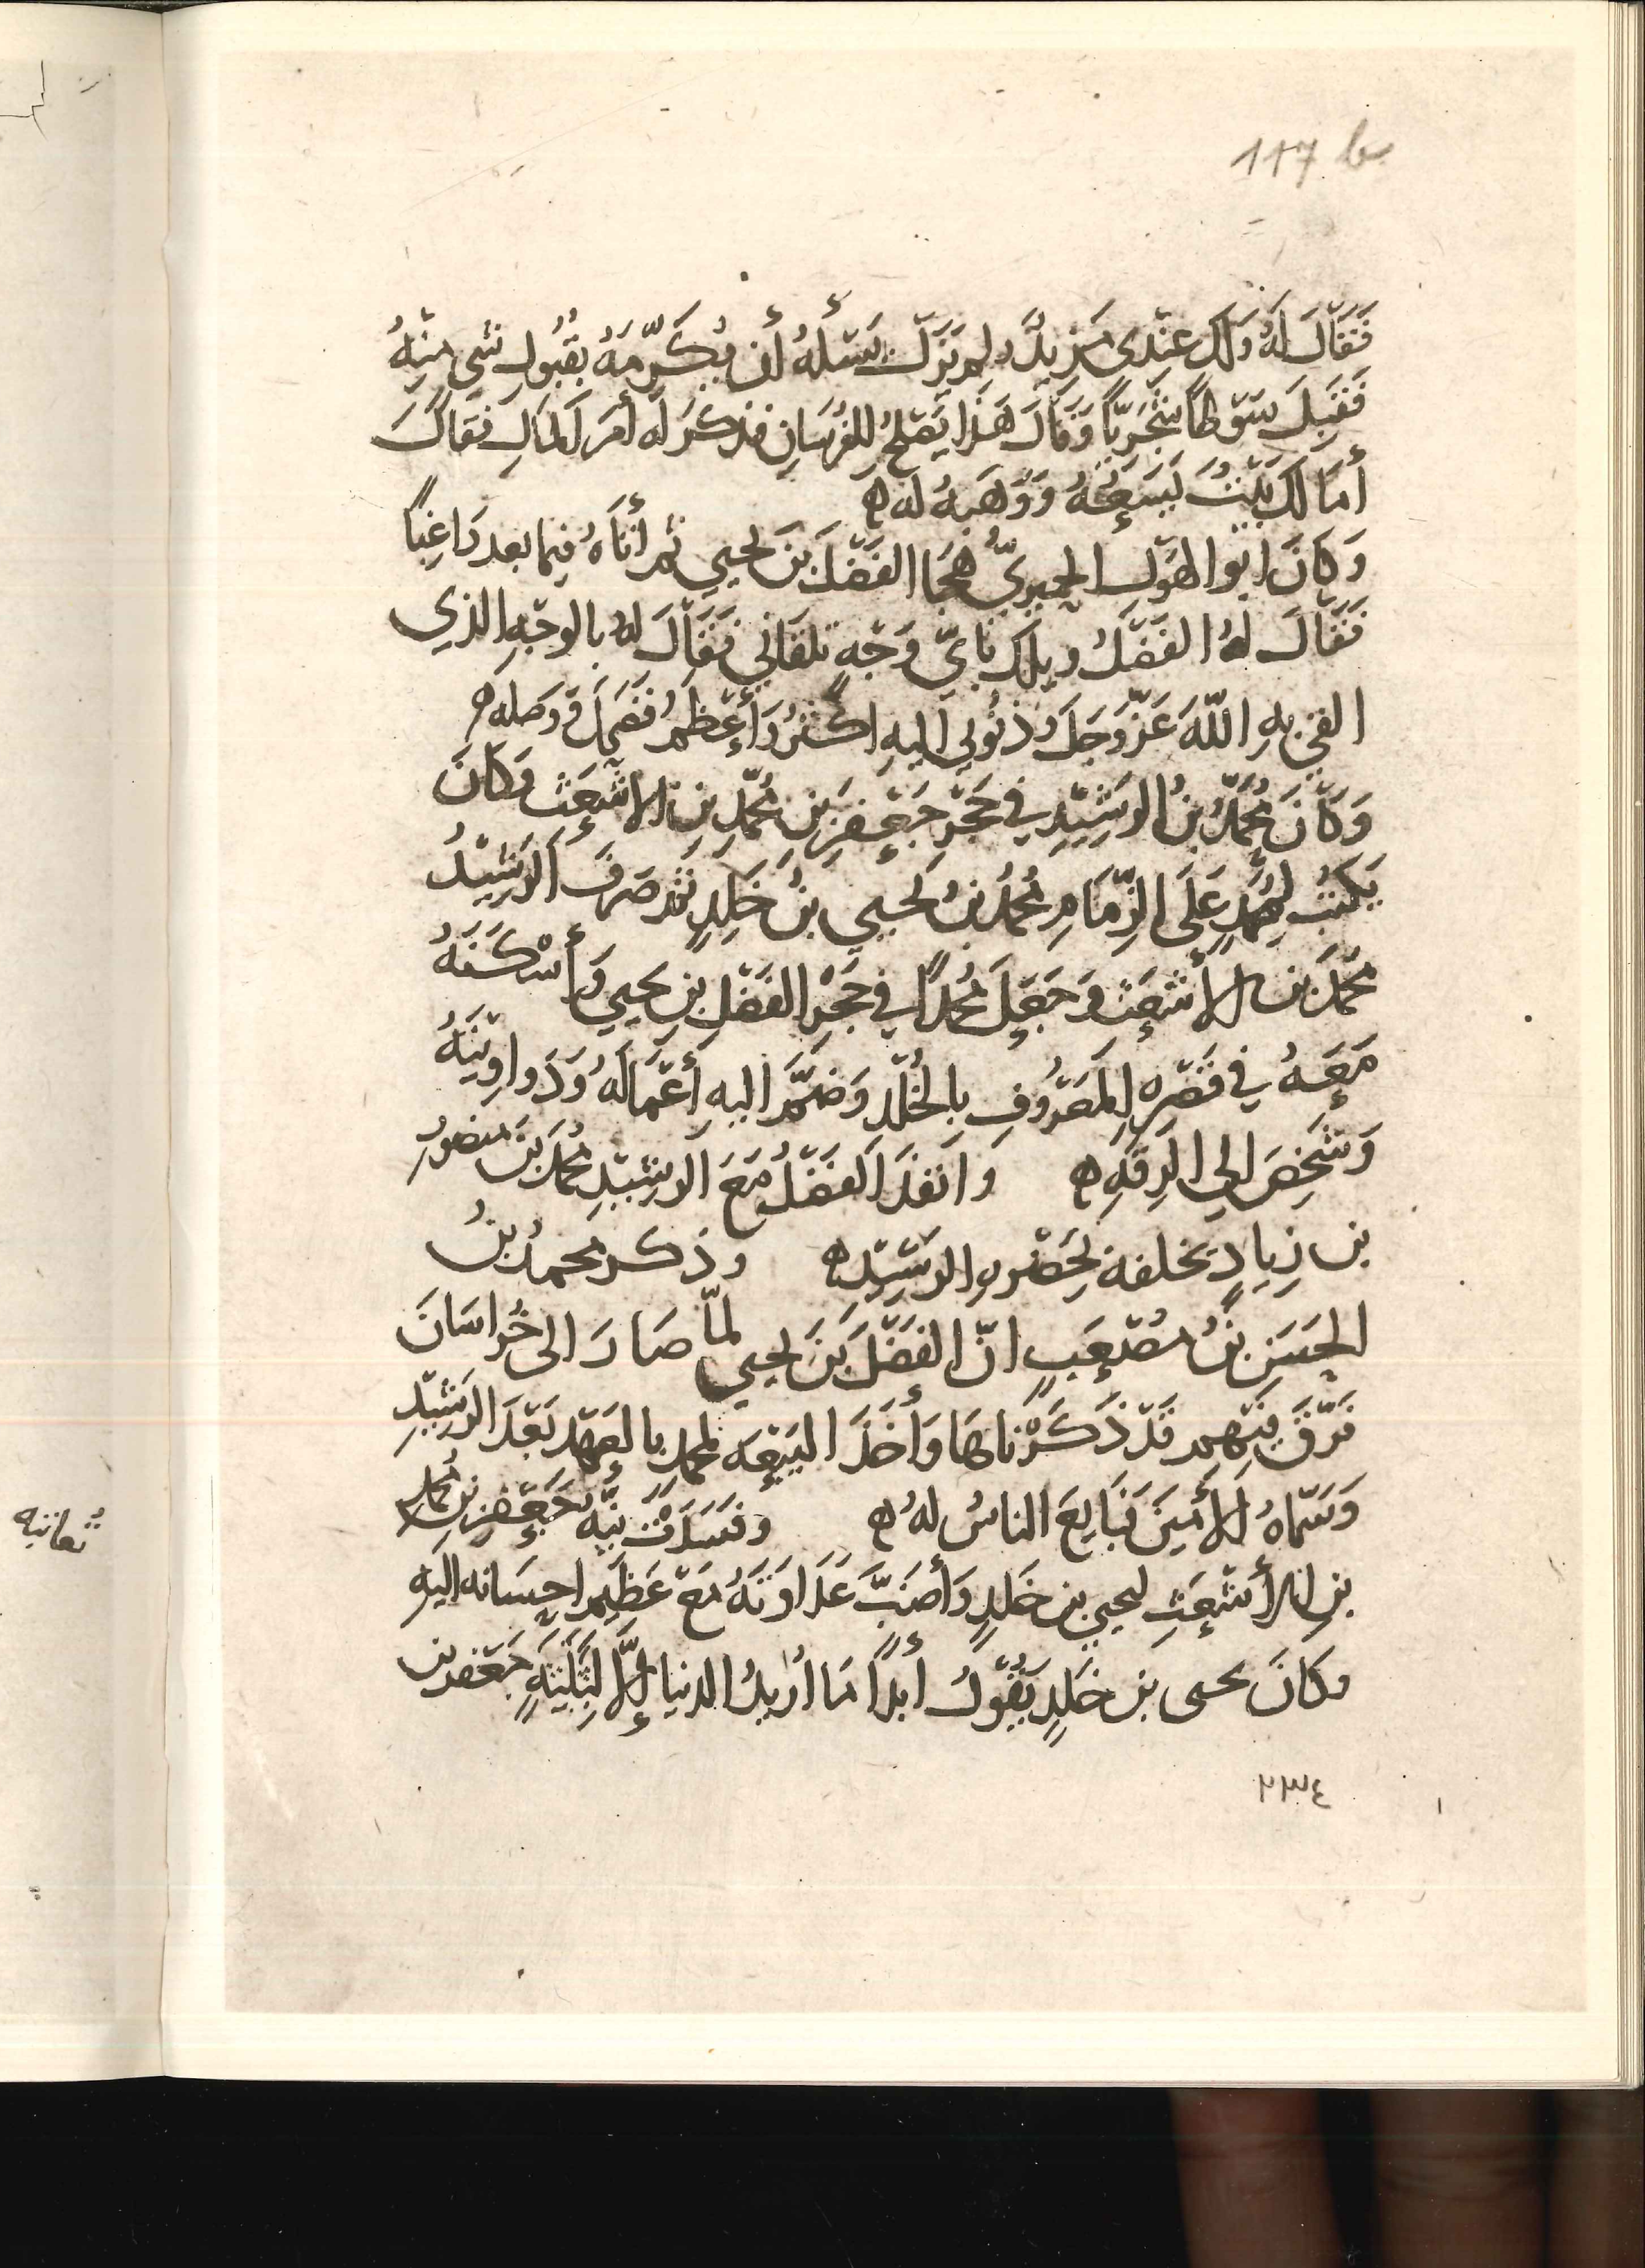 117 b
فَقَالَ لَهُ وَلَكَ عِنْدِي مَزِيدٌ وَلم يَزَل يَسْئَلُهُ أن يُكَرِّمَهُ بقُبُولِ شيٍ مِنْهُ
فَقَبِلَ سَوْطاً سِجْزِيًّا وَقَالَ هَذَا يَصْلحُ لِلفُرسَانِ فذكرَ لَه أمرَ المالِ فقالَ
أمَا لَكَ بَيْتٌ يَسَعُهُ وَوَهَبهُ لَه ه
وَكانَ ابُو الهَوْلِ الحِميرِيّ هَجَا الفَضْلَ بنَ يحيي ثم أتَاهُ فِيما بعد رَاغِبًا
فَقَالَ لهُ الفَضْلُ ويلك بايّ وَجْهٍ تلقَاني فَقَالَ لهُ بالوجْهِ الذي
القي بهِ اللّهَ عَزَّوَجَلَّ وذنُوبي اليهِ اكْثَرُ وَأعْظَمُ فضَحِكَ ووَصَله ه
وَكَانَ مُحَمَّدُ بنُ الرَشِيْدِ في حَجْرِ جَعْفرِ بنِ مُحمّدِ بنِ الاشْعَث وَكانَ
يَكتُبُ لِمُحَمَّدٍ عَلَى الزِّمَامِ مُحمدُ بنُ يحيي بنُ خَلِدٍ ثم صَرفَ الرَشِيْدُ
مُحَمدَ بنَ الأشعَث وَجَعَلَ مُحمداً في حَجْرِ الفَضْلِ بنِ يحيي وَأسْكَنَهُ
مَعَهُ في قَصْرِهِ المَعْرُوفِ بالخُلْدِ وَضَمَّ اليهِ أعْمَالَهُ وَدَواوِيْنَهُ
وَشَخَصَ الي الرقَّةِ ه وَانفذَ الفَضْلُ مَعَ الرشِيْدِ مُحمدَ بنَ منصُورِ
بن زِيادٍ يخلفه بحَضْرةِ الرَشِيْدِ ه وذكر محمدُ بنُ
الحَسَنِ بنُ مصْعَبٍ انّ الفَضْلَ بنَ يحيي لمّا صَارَ الى خُراسَانَ
فرّقَ فِيْهم قَدْ ذَكَرْنَاهَا وَأخَذَ البَيْعَه لمحمدٍ بالعَهْدِ بَعْدَ الرَشِيْدِ
وَسَمّاهُ الأمينَ فَبَايعَ الناسُ لهُ ه وفسَدَتْ نيّه جَعْفرِ بنِ مُحمدِ
بنِ الأشْعَثِ ليحيي بن خَلدٍ وَأصَبَّ عَدَاوَتَهُ مَعَ عَظِيمِ احسَانه اليهِ
وكانَ يحيى بن خَلدٍ يَقُولُ أبداً مَا اُرِيدُ الدنيا إلّا لِثَلثَةٍ جَعْفر بن
٢٣٤
ثمانيه